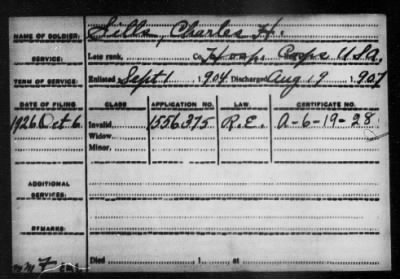 NAME OF SOLDIER: Sills, Charles H.
SERVICE: Late rank, Co. Hosp. Corps U.S.A.
TERM OF SERVICE: Enlisted Sept 1 1904 Discharged Aug 19, 1907
DATE OF FILING. CLASS. APPLICATION NO. LAW. CERTIFICATE NO.
1926 Oct 6 Invalid, 1556375 R.E. A-6-19-28
Widow,
Minor,
ADDITIONAL
SERVICES:
REMARKS:
Died , 1 , at